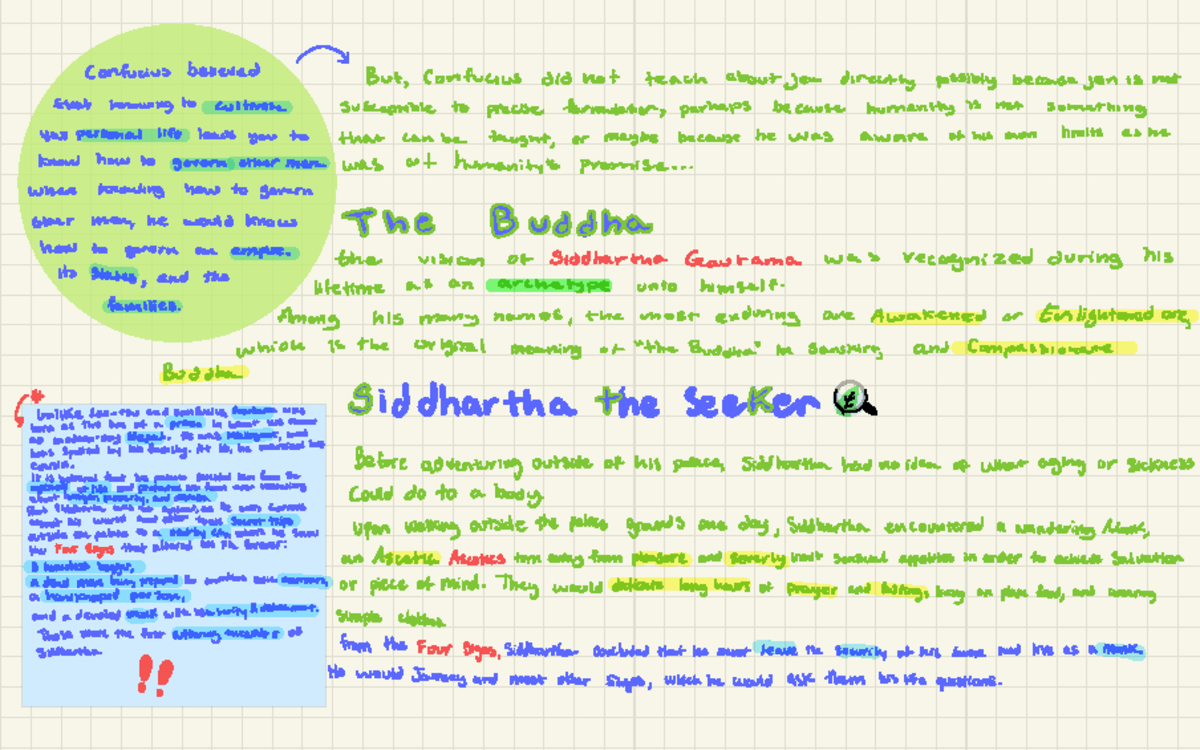 Confucius believed
that knowing to cultivate
your personal life leads you to
know how to govern other men.
when knowing how to govern
other men, he would know
how to govern an empire.
Its States, and the
families.
But, Confucius did not teach about jen directly possibly because jen is not
susceptible to precise formulation, perhaps because humanity is not something
that can be taught, or maybe because he was aware of his own limits as he
was of humanity's promise...
The Buddha
the vision of Siddhartha Gautama was recognized during his
lifetime as an archetype unto himself.
Among his many names, the most enduring are Awakened or Enlightened one,
which is the original meaning of "the Buddha" in Sanskrit, and Compassionate
Buddha
Siddhartha the Seeker
Before adventuring outside of his palace, Siddhartha had no idea of what aging or sickness
Could do to a body.
Upon walking outside the palace grounds one day, Siddhartha encountered a wandering Monk,
an Ascetic Ascetics turn away from pleasure and severely limit sensual appetites in order to achieve Salvation
or piece of mind. They would dedicate long hours of prayer and fasting, living on plain food, and wearing
simple clothes.
from the Four Signs, Siddhartha concluded that he must leave the security of his home and live as a monk.
He would Journey and meet other Sages, which he would ask them his life questions.
Unlike Lao-tzu and Confucius was
born as the son of a prince in what is now
as modern day Nepal. He was and
was spoiled by his family. At 16, he married his
cousin.
It is believed that his palace him from the
of life and from ever
about human poverty, and
about his world and secret trips
outside the palace to a nearby city where he saw
the Four Signs that altered his life forever:
A beggar,
a dead man being to another ceremony,
a handicapped person,
and a devoted monk with
These were the first of
Siddhartha.
!!